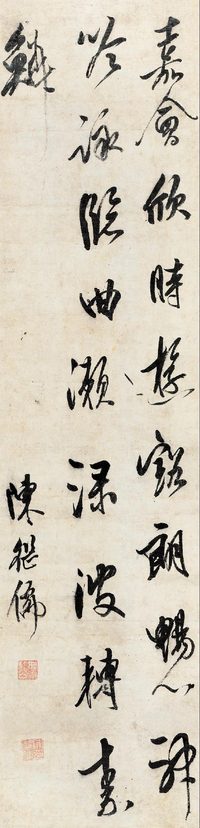 嘉會欣時遊豁朗暢心神
吟詠臨曲瀨淥波轉素
鱗
陳繼儒